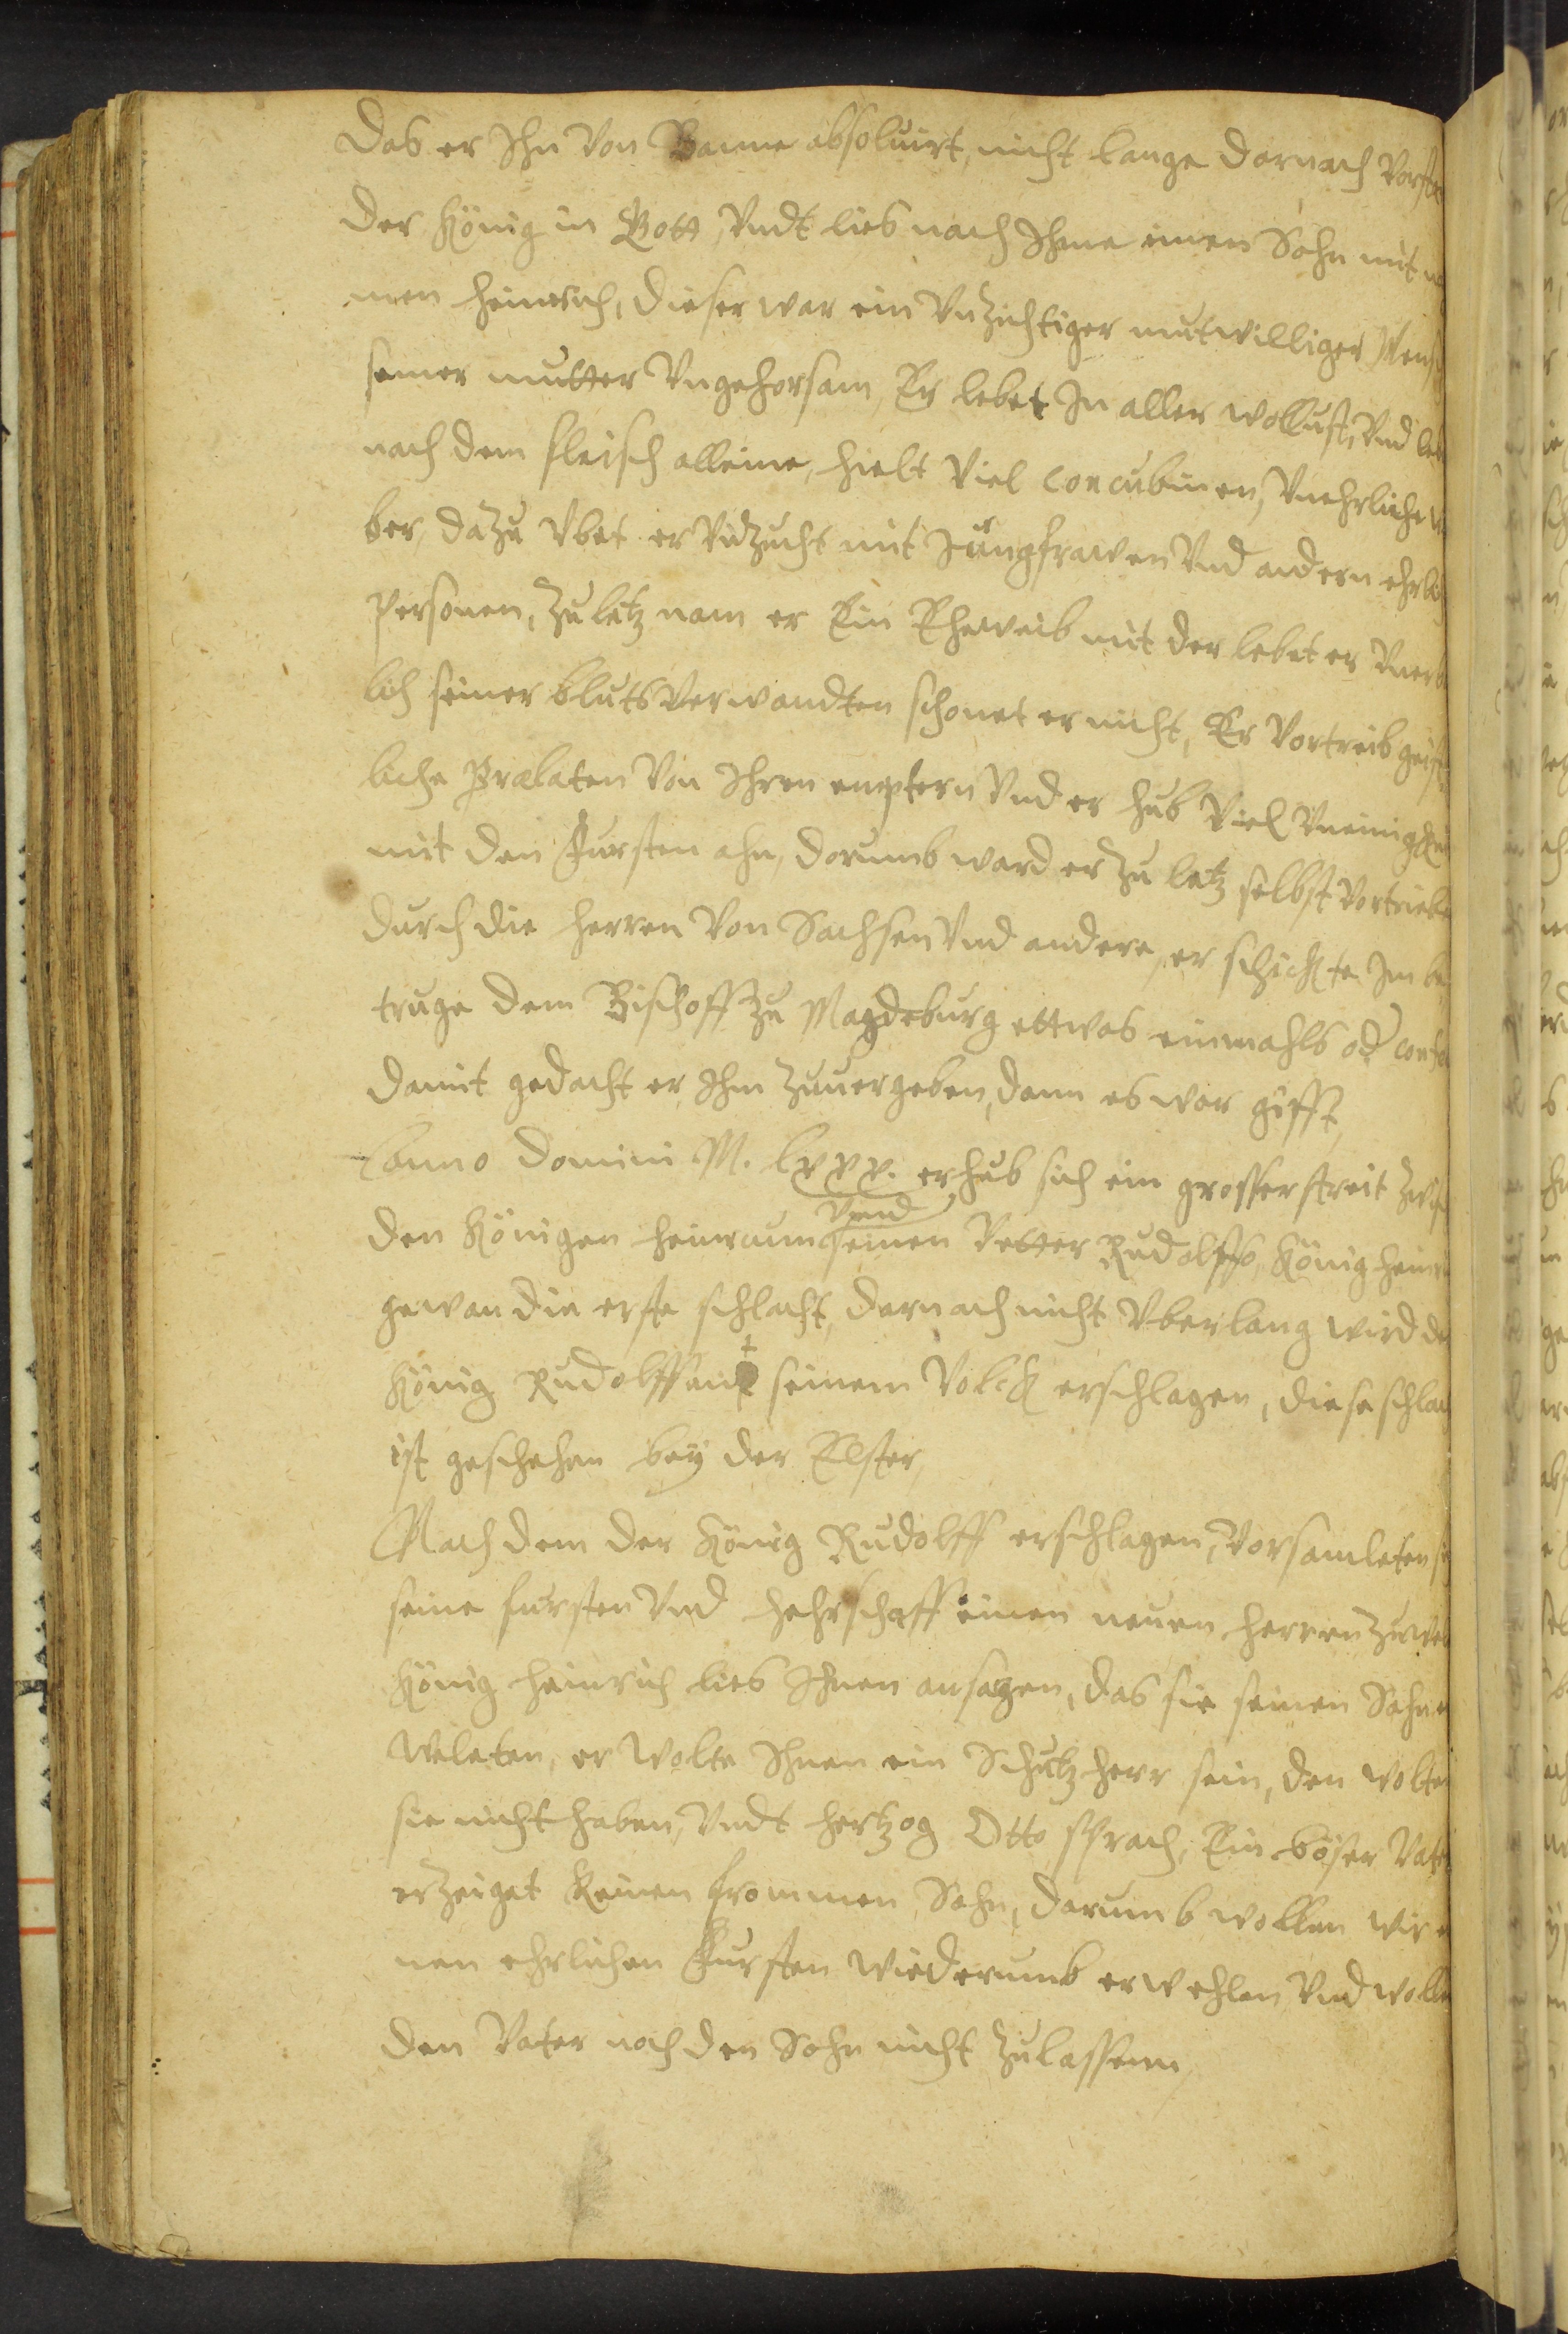 Das er Ihn Von Banne absoluirt, nicht lange darnach Vorst
der König in Gott, Vndt lies nach Ihme einen Sohn mit
men Heinrich, dieser war ein Vnzichtiger mutwilliger Mens
seiner mutter Vngehorsam, Er lebet In aller wollust, Vnd leb
nach dem fleisch alleine, hielt Viel Concubinen, Vnehrliche
ber, dazu Vbet er Vnzucht mit Jungfrawen Vnd andern ehrli
Personen, Zuletz nam er Ein Eheweib mit der lebet er Vner
lich seiner blutsVerwandten schonet er nicht, Er Vortreib geist
liche Prælaten Von Ihren emptern Vnd er hub Viel Vneinigkei
mit den Fursten ahn, dorumb ward er Zu letz selbst Vortriebe
durch die Herren Von Sachsen Vnd andere, er schickte Im be
truge dem Bischoff Zu Magdeburg ettwas einmahls od conf
damit gedacht er Ihm Zuuergeben, dann es war gifft,
Anno Domini M. lxxx. erhub sich ein grosser streit Zwis
den Königen Heinricum Vnd seinen Vetter Rudolffo, König Hein
gewan die erste schlacht, darnach nicht Vberlang wird de
König Rudolff mit seinem Volck erschlagen, diese schlac
ist geschehen bey der Elster,
Nach dem der König Rudolff erschlagen, Vorsamleten si
seine fursten Vnd Hehrschafft einen neuen Herren Zuwel
König Heinrich lies Ihnen ansagen, das sie seinen Sohn
Weleten, er Wolte Ihnen ein Schutzherr sein, den Wolte
sie nicht haben, Vndt Hertzog Otto sprach, Ein böser Vat
erzeiget Keinen frommen Sohn, darumb wollen wir e
nen ehrlichen Fursten Wiederumb erwehlen Vnd wolle
den Vater noch den Sohn nicht Zulassenn,